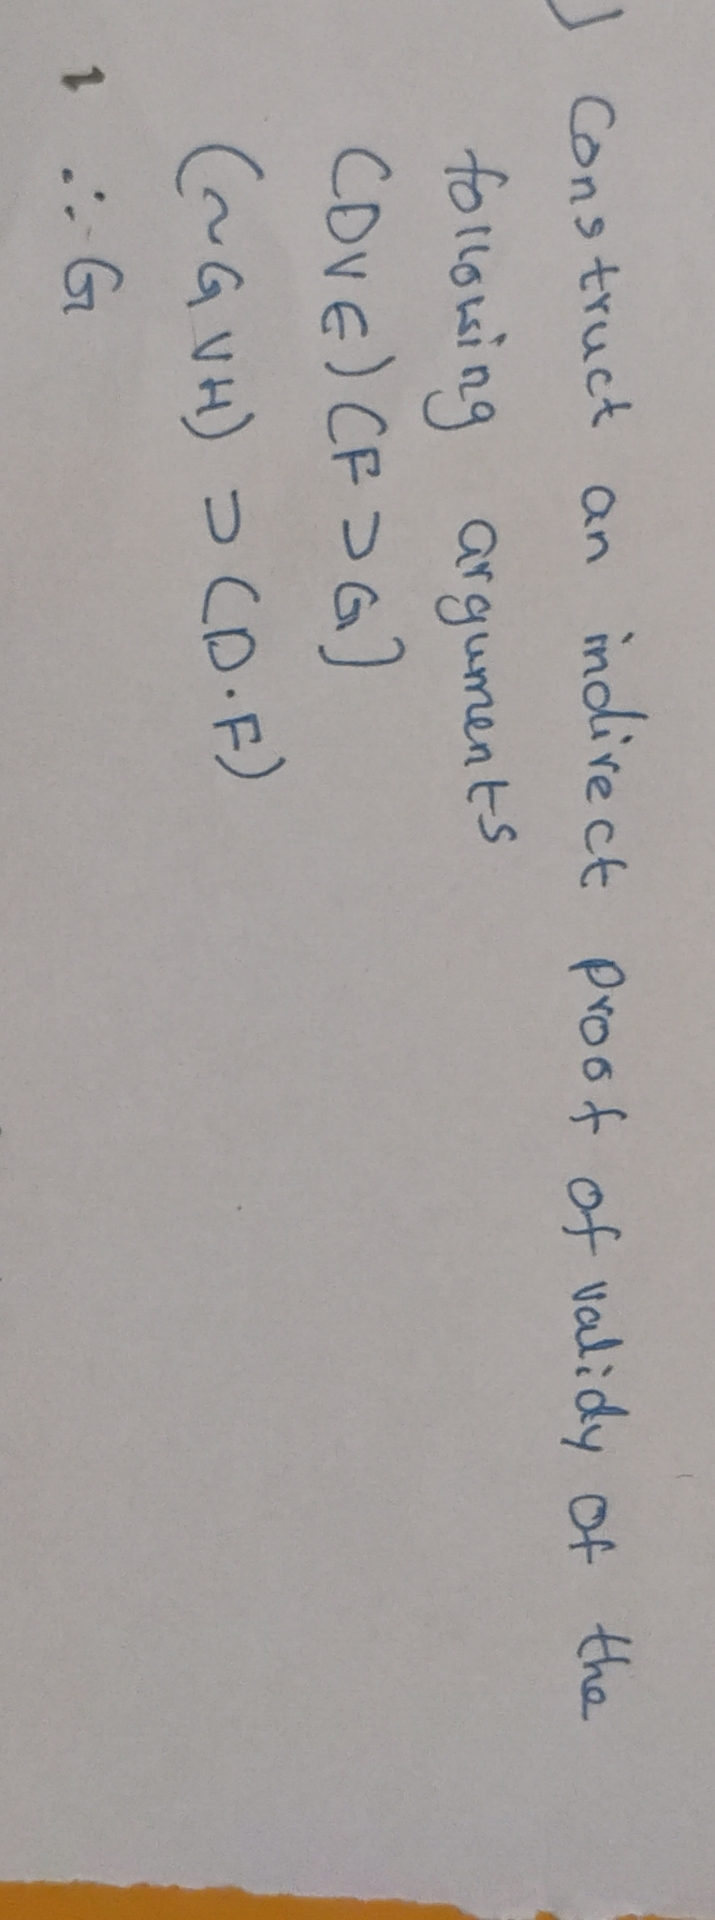 ) Construct an indirect proof of validy of the
following arguments
(DVE) (F ⊃ G]
(~G VH) ⊃ (D.F)
∴ G